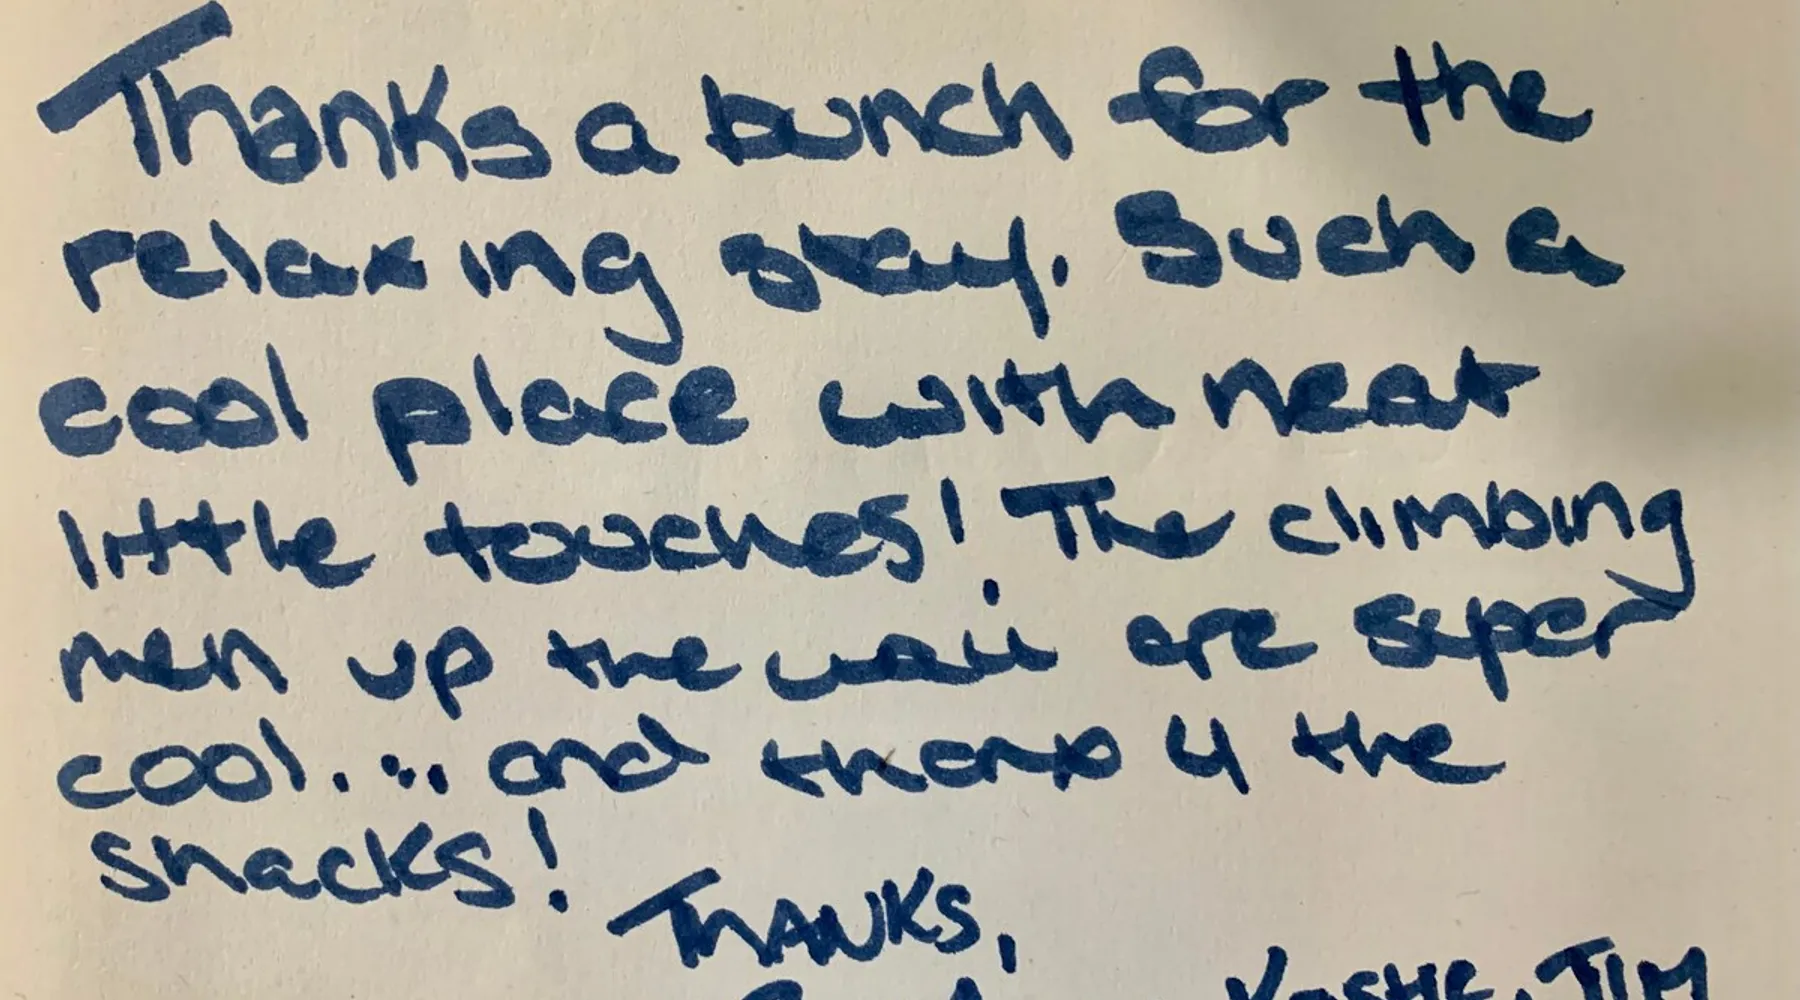 Thanks a bunch for the
relaxing stay. Such a
cool place with neat
little touches! The climbing
men up the wall are super
cool.... and thanx 4 the
snacks!
THANKS,
JIM